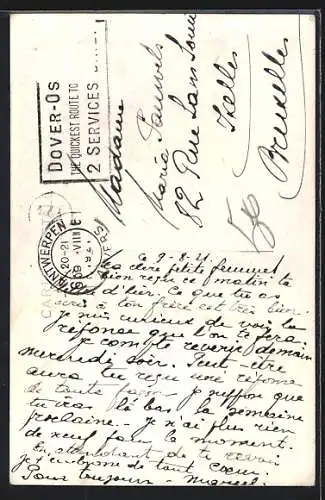 DOVER-OS
THE QUICKEST ROUTE TO
2 SERVICES
ANTWERPEN
20-21
9 VIII
1921
ANVERS
Madame
Maria Pauwels
82 Rue Sans Souci
Ixelles
Bruxelles
Ce 9-8-21.
Ma chère petite femme!
bien reçu ce matin ta
d'hier. Ce que tu as
à ton frère est très bien.
Je suis curieux de voir la
réponse que l'on te fera.
Je compte revenir demain
mercredi soir. Peut-être
auras tu reçu une réponse
de tante. Je suppose que
tu vas là bas la semaine
prochaine. Je n'ai plus rien
de neuf pour le moment.
En attendant de te revoir
je t'embrasse de tout cœur.
Pour toujours - Marcel.